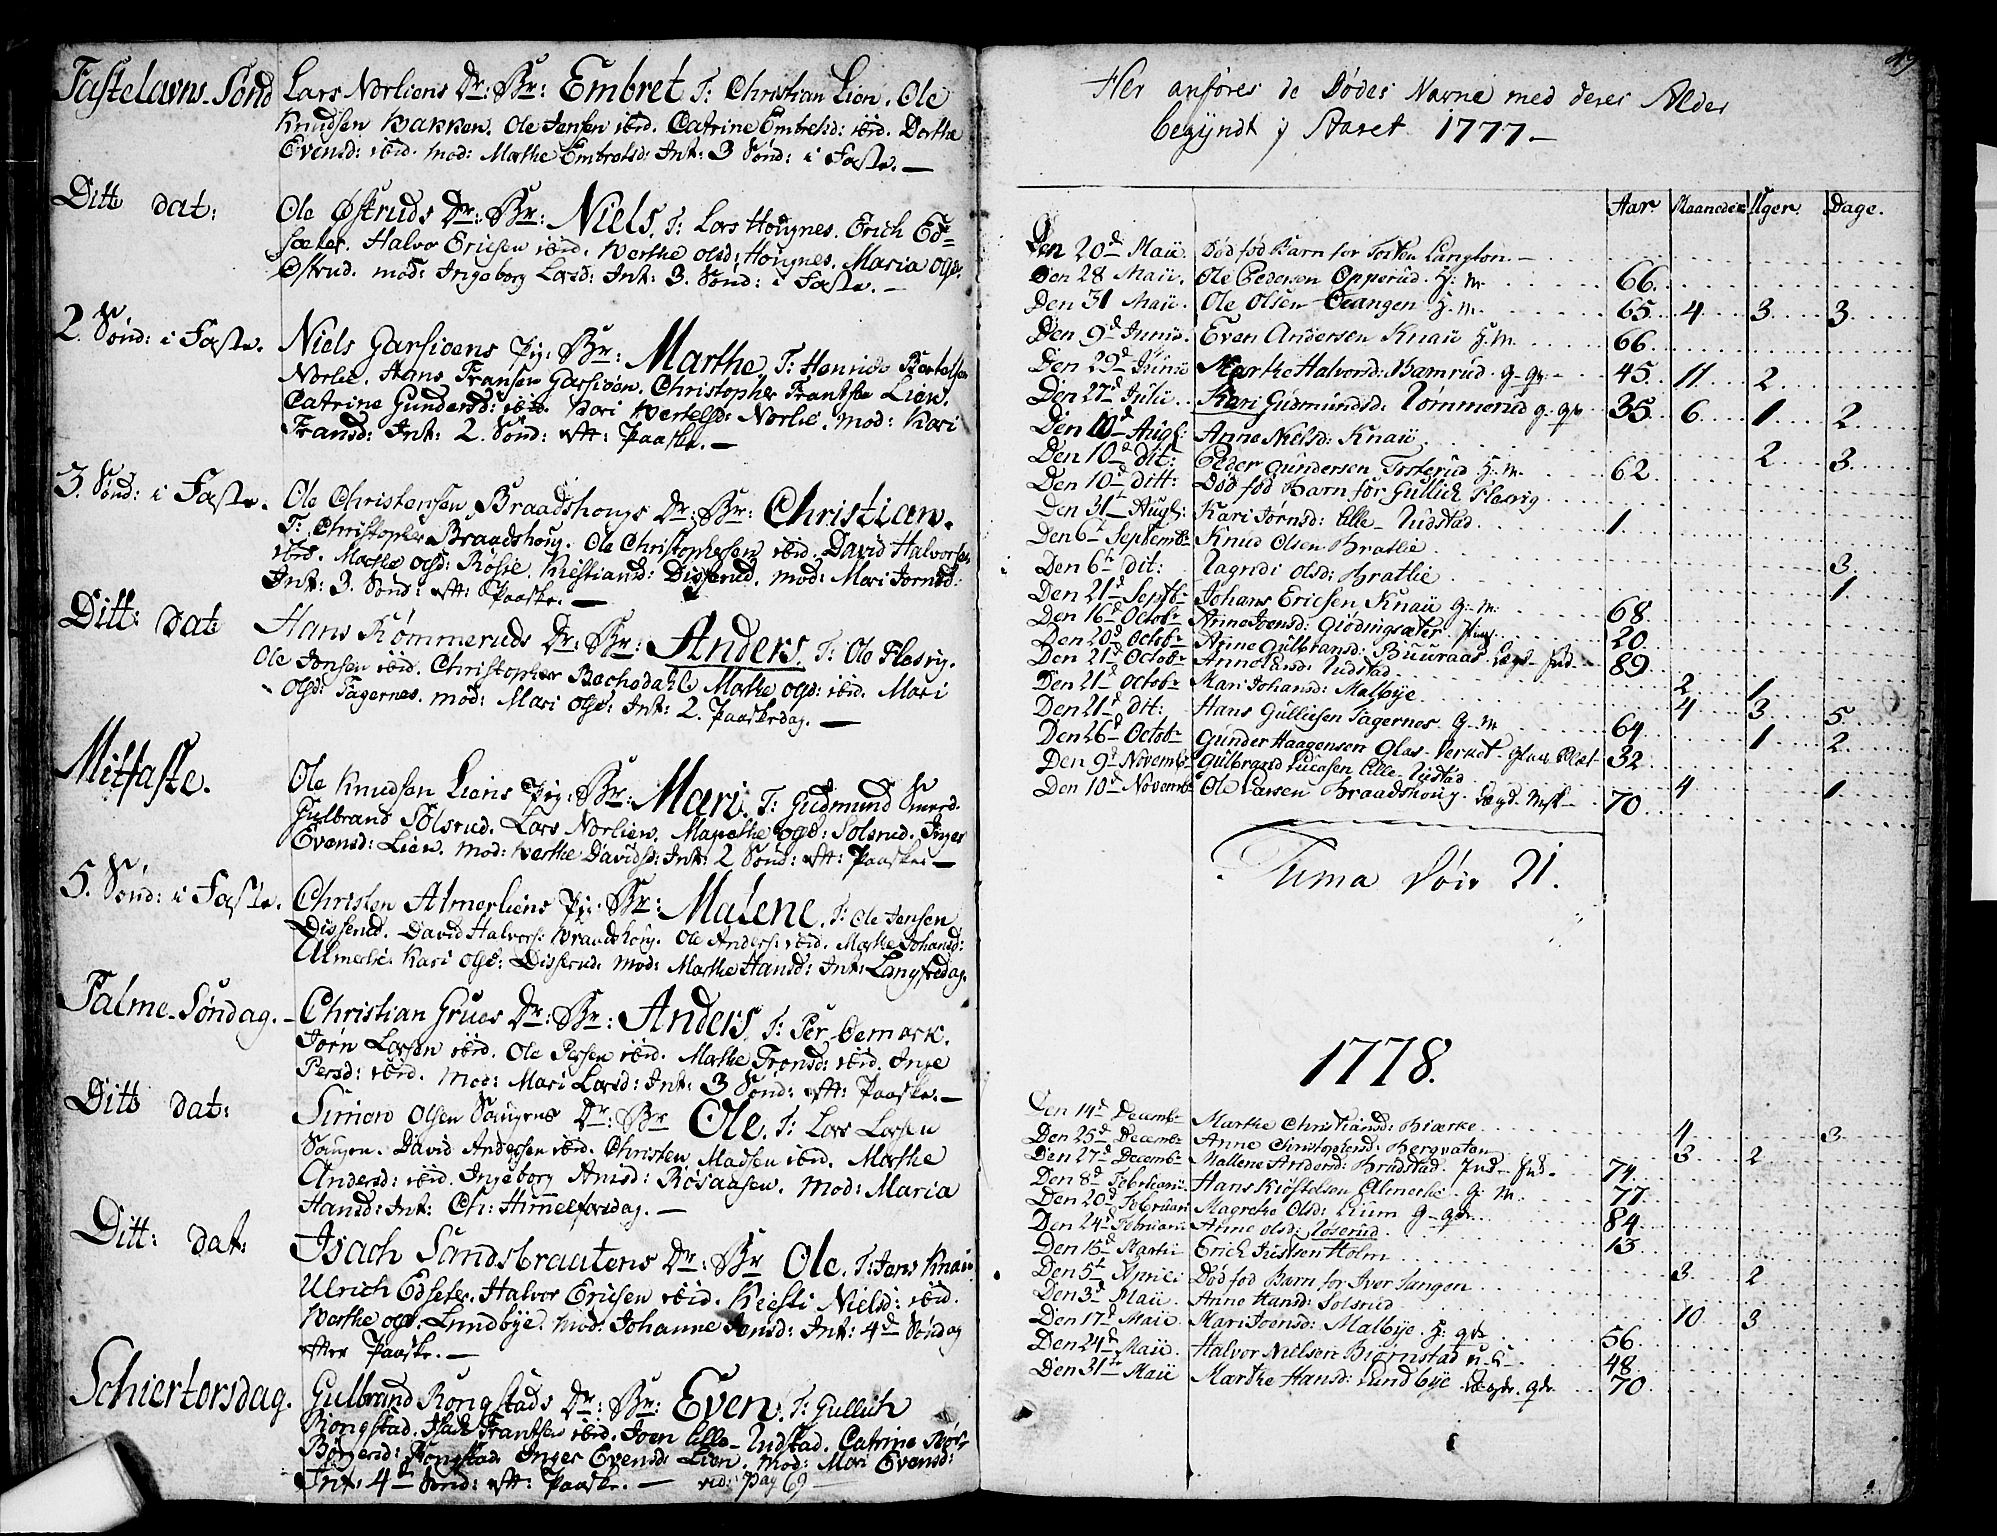 Fastelavns-Sønd Lars Norliens Dr: Br: Embret T: Christian Lien. Ole
Knudsen Bakken. Ole Jensen ibid. Catrine Embretsd: ibid. Dorthe
Evensd: ibid. mod: Marthe Embretsd: Int: 3 Sønd: i Faste.—
Ditt dat: Ole Østruds Dr: Br: Niels. T: Lars Hougnes. Erich Ed=
sæter. Halvor Ericsen ibid. Berthe Olsd: Hougnes. Maria Olsd:
Østrud. mod: Ingeborg Larsd: Int: 3. Sønd: i Faste.—
2. Sønd: i Faste. Niels Garsioens Pig: Br: Marthe. T: Henrich Bertelsen
Norlie. Hans Fransen Garsioen. Christopher Frantsen Lien.
Catrine Gundersd: ibid. Kari Bertelsd: Norlie. mod: Kari
Fransd: Int: 2. Sønd: eft: Paaske.—
3. Sønd: i Faste. Ole Christensen Braadshougs Dr: Br: Christian.
T: Christopher Braadshoug. Ole Christophersen ibid. David Halvorsen
ibid. Marthe Olsd: Røsie. Kiestiansd: Disserud. mod: Mari Jørnsd:
Int: 3. Sønd: eft: Paaske.—
Ditt: dat: Hans Rømmeruds Dr: Br: Anders. T: Ole Flesvig.
Ole Jensen ibid. Christopher Bæchedahl. Marthe Olsd: ibid. Mari
Olsd: Tagernes. mod: Mari Olsd: Int: 2. Paaskedag.—
Mitfaste. Ole Knudsen Liens Pig: Br: Mari. T: Gudmund
Gulbrand Solsrud. Lars Norlien. Marethe Olsd: Solsrud. Inger
Evensd: Lien. Mod: Berthe Davidsd: Int: 2 Sønd: eft: Paaske.—
5. Sønd: i Faste. Christen Almerliens Pig: Br: Malene. T: Ole Jensen
Disserud. David Halvors: Braadshoug. Ole Anders: ibid. Marthe Johansd:
Almerlie. Kari Olsd: Disserud. mod: Marthe Hansd: Int: Langfredag.
Palme-Søndag.- Christian Grues Dr: Br: Anders. T: Per Oemark.
Jørn Larsen ibid. Ole Persen ibid. Marthe Tronsd: ibid. Inge
Persd: ibid. Mod: Mari Larsd: Int: 3 Sønd: eft: Paaske.—
Ditt dat: Simon Olsen Sougens Dr: Br Ole. T: Lars Larsen
Sougen. David Andersen ibid. Christen Madsen ibid. Marthe
Andersd: ibid. Ingeborg Anisd: Røsaasen. Mod: Maria
Hansd: Int: Ch: Himmelfarsdag.—
Ditt: dat: Isach Sandsbrautens Dr: Br Ole. T: Jens Knai
Ulrich Edseter. Halvor Ericsen ibid. Kiesti Nielsd: ibid.
Berthe Olsd: Lundbye. mod: Johanne Jensd: Int: 4d Søndag
efter Paaske.—
Schiertorsdag. Gulbrand Kongstads Dr: Br: Even. T: Gullich
Kongstad. Isach Frantsen ibid. Joen Lille-Udstad. Catrine
Børgersd: Kongstad. Inger Evensd: Lien. Mod: Mari Evensd:
Int: 4d Sønd: eft: Paaske.— vid: Pag 69
49
Her anføres de Dødes Navne med deres Alder
begyndt i Aaret 1777—
Aar. Maaneder Uger. Dage.
Den 20d Maii. Død fød Barn for Torsten Langton.—
Den 28 Maii. Ole Pedersen Opperud. G: M. 66.
Den 31 Maii. Ole Olsen Ocangen G. M. 65. 4. 3. 3.
Den 9d Junii. Even Andersen Knaii G. M. 66.
Den 29d Junii Marthe Halvorsd: Bamrud. G-qv. 45. 11 2.
Den 27d Julii. Kari Gudmundsd: Tømmerud G-qv. 35. 6. 1. 2.
Den 10d Aug: Anne Nielsd: Knaii. 2. 3.
Den 10d dit: Peder Gundersen Fosserud G. M. 62
Den 10d ditt: Død fød Barn for Gullich Flesvig
Den 31t Aug: Kari Jørnsd: Lille-Udstad. 1.
Den 6t Septembr Knud Olsen Bratlie. 3.
Den 6t dit: Ragndi Olsd: Bratlie. 1.
Den 21d Septbr Johans Ericsen Knaii G. M. 68.
Den 16d Octobr Anne Joensd: Giødingsæter. Pig. 20.
Den 20d Octobr Anne Gulbransd: Buuraas. Lægd- Ind- 89.
Den 21d Octobr Anne Larsd: Udstad. 2. 1.
Den 21d Octobr Mari Johansd: Malbye. 4. 3. 5.
Den 21d dit: Hans Gullicsen Tagernes. G-M 64. 1. 2.
Den 26d Octobr Gunder Haagensen Glas-Verket- Glas Blæs- 32.
Den 9d Novembr Gulbrand Lucasen Lille-Udstad. 4. 1.
Den 10d Novembr Ole Larsen Braadshoug. Lægd. Msk- 70.
Suma Døde 21.
1778.
Den 14d Decembr Marthe Christiansd: Biærke. 4. 3.
Den 25d Decembr Anne Christophersd: Bergvaten. 3. 2.
Den 27d Decembr Mallene Andersd: Brudstad. Ind- Ind- 74.
Den 8d Februarii. Hans Kiøstelsen Almerlie. G. M. 77.
Den 20d Februari Magrethe Olsd: Lium G-qv. 84.
Den 24d Februari. Anne Olsd: Løserud. 13.
Den 15d Martii Erich Justsen Holm. 3. 2.
Den 5t Aprili Død fød Barn for Iver Tangen.
Den 3d Maii. Anne Hansd: Solsrud. 10. 3.
Den 17d Maii. Kari Joensd: Malbye. G. qv. 56.
Den 24d Maii. Halvor Nielsen Biørnstad u-G- 48.
Den 31te Maii Marthe Hansd: Lundbye Lægds. qv. 70.